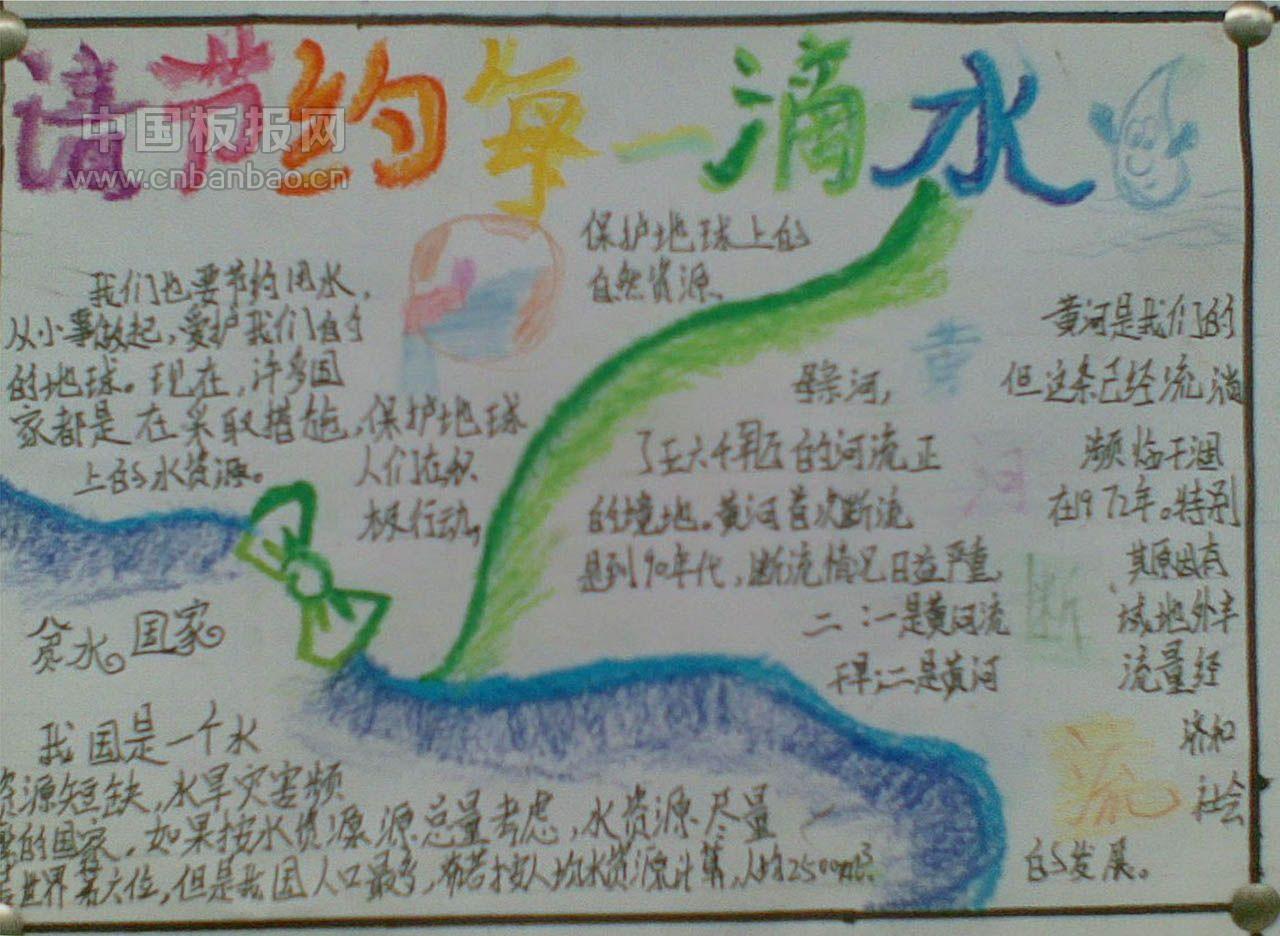 请节约每一滴水
中国板报网
www.cnbanbao.cn
保护地球上的
自然资源。
我们也要节约用水，
从小事做起，爱护我们自的
的地球。现在，许多国
家都是在采取措施，保护地球
上的水资源。
人们在积
极行动。
黄河断流
黄河是我们的
母亲河， 但这条已经流淌
了五六千年 的河流正 濒临干涸
的境地。黄河首次断流 在1972年。特别
是到90年代，断流情况日益严重 其原因有
二：一是黄河流 域地外丰
干旱；二是黄河 流量经
济和
社会
的发展。
贫水国家
我国是一个水
资源短缺，水旱灾害频
的国家。如果按水资源源总量考虑，水资源尽量
居世界第六位，但是我国人口最多，若按人均水资源计算，人均2500